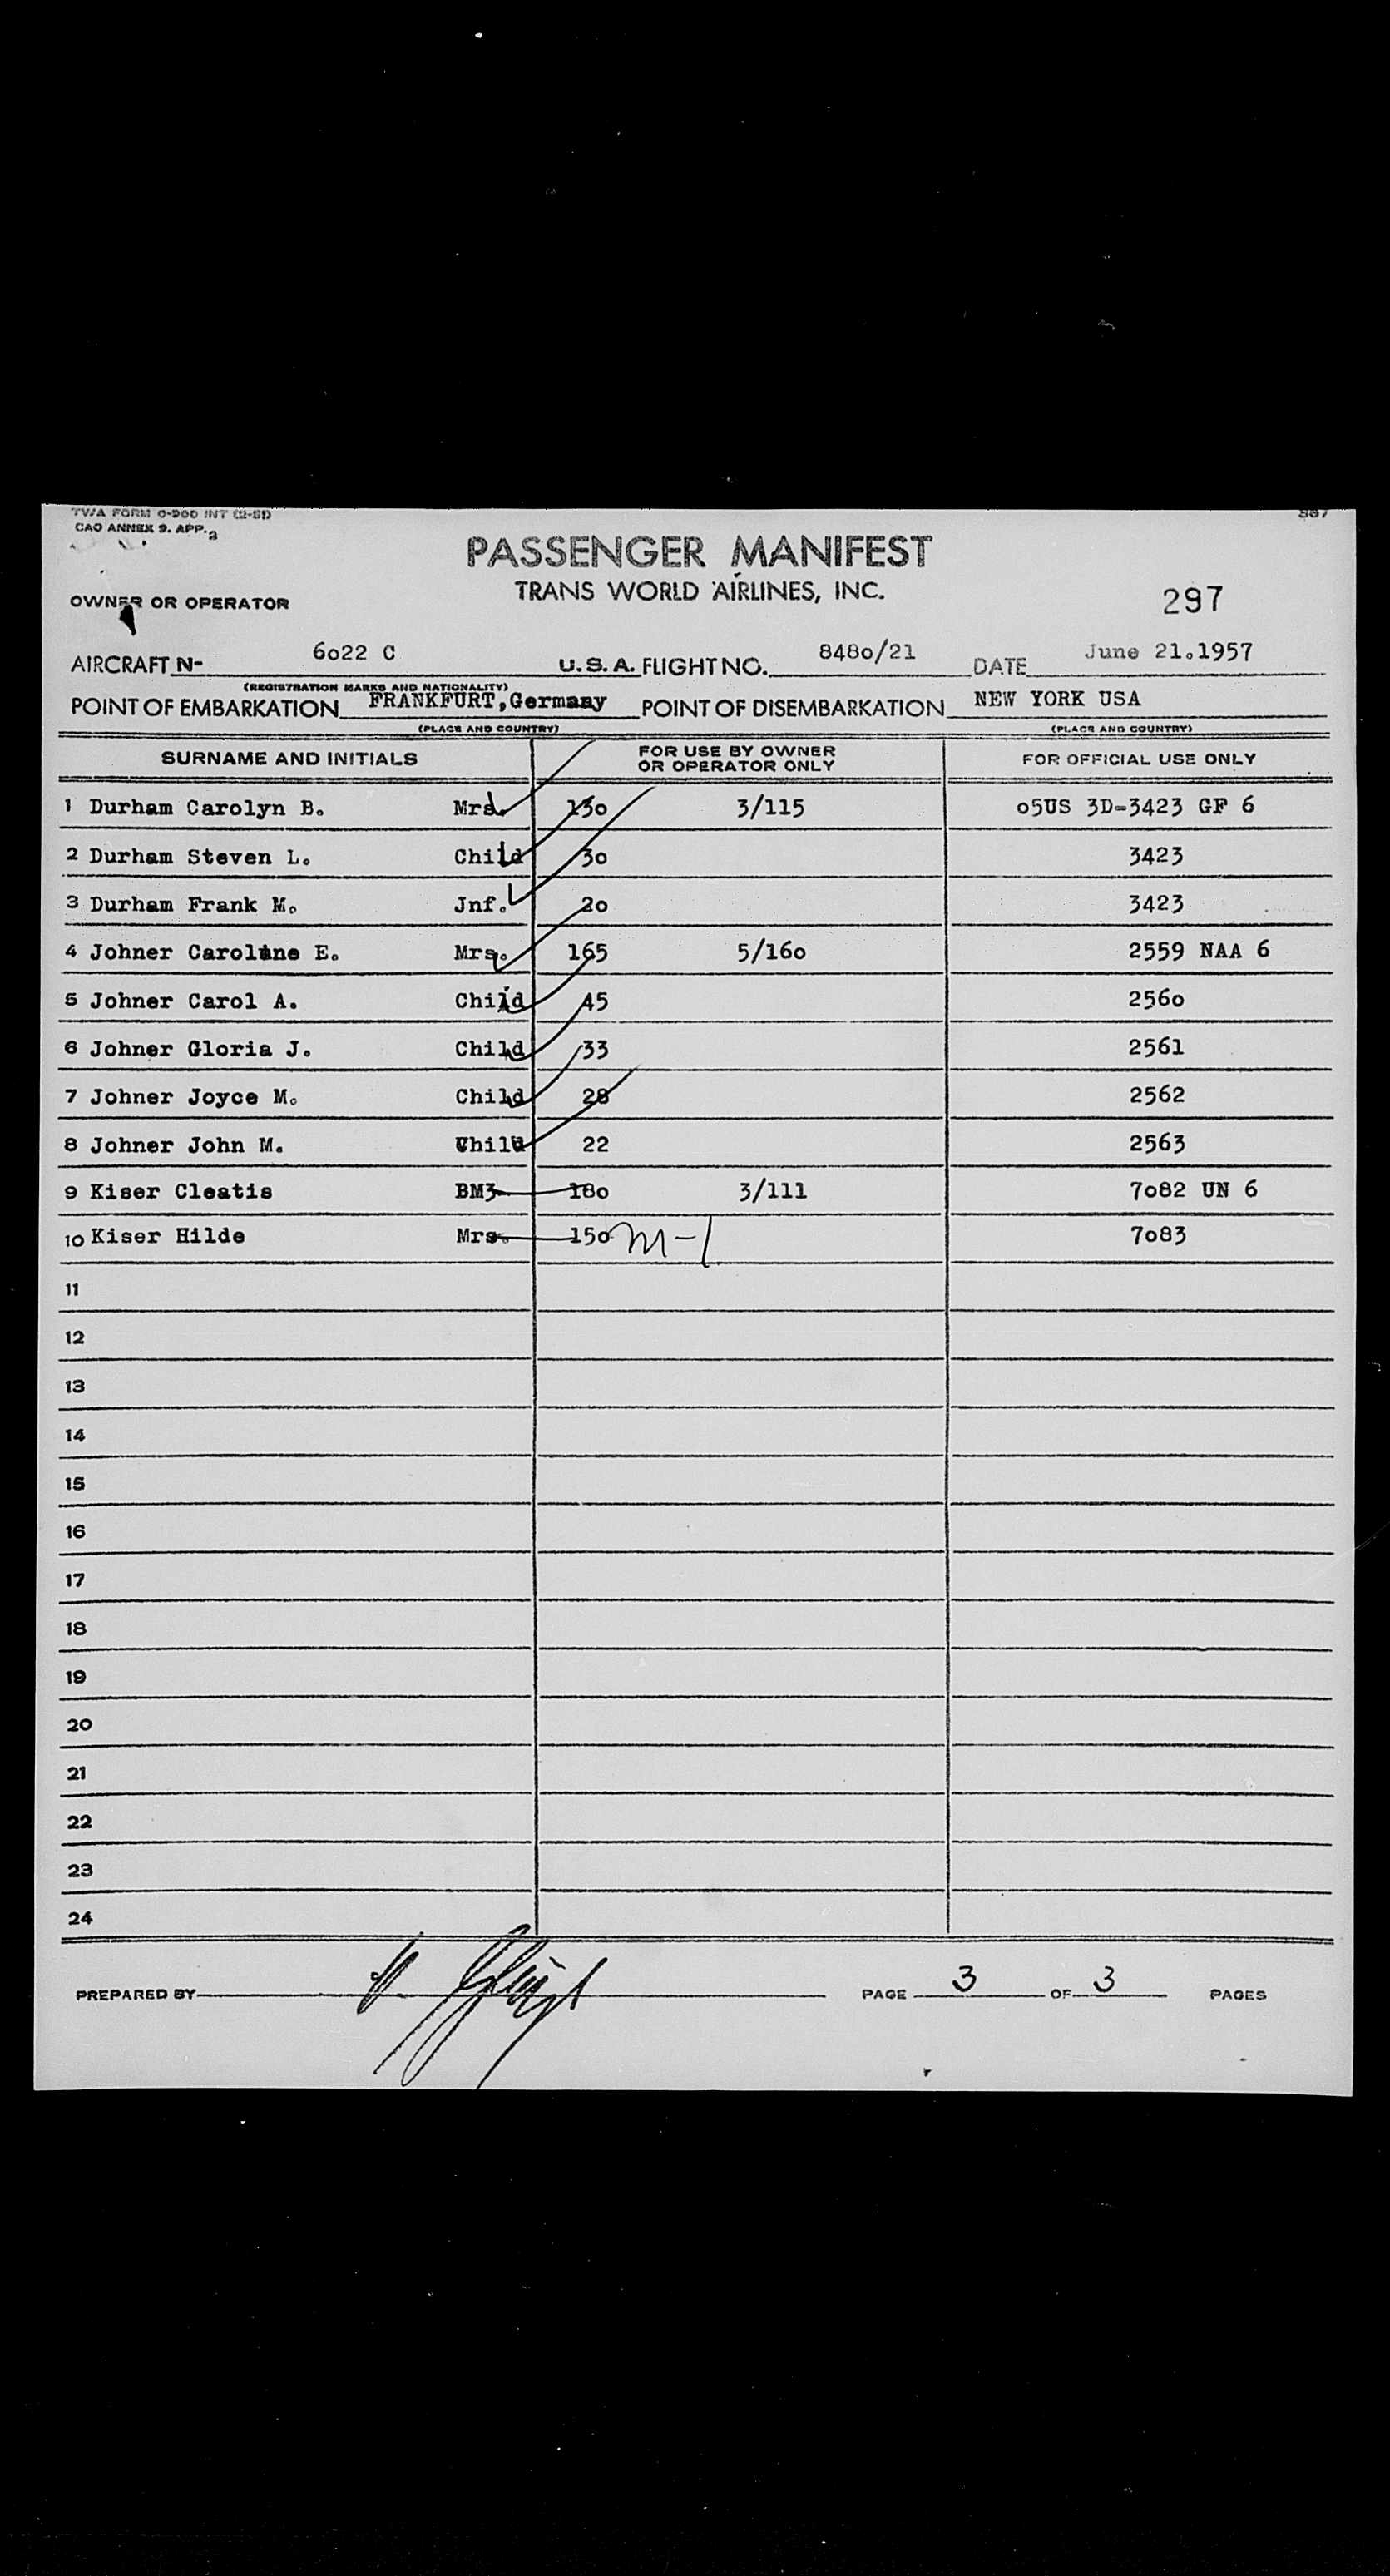 TWA FORM O-900 INT (2-51)
CAO ANNEX 9. APP. 2
PASSENGER MANIFEST
TRANS WORLD AIRLINES, INC.
OWNER OR OPERATOR
297
AIRCRAFT N- 6022 C U.S.A. FLIGHT NO. 8480/21 DATE June 21.1957
(REGISTRATION MARKS AND NATIONALITY)
POINT OF EMBARKATION FRANKFURT,Germany POINT OF DISEMBARKATION NEW YORK USA
(PLACE AND COUNTRY) (PLACE AND COUNTRY)
SURNAME AND INITIALS FOR USE BY OWNER OR OPERATOR ONLY FOR OFFICIAL USE ONLY
1 Durham Carolyn B. Mrs. 130 3/115 05US 3D-3423 GF 6
2 Durham Steven L. Child 30 3423
3 Durham Frank M. Jnf. 20 3423
4 Johner Caroline E. Mrs. 165 5/160 2559 NAA 6
5 Johner Carol A. Child 45 2560
6 Johner Gloria J. Child 33 2561
7 Johner Joyce M. Child 28 2562
8 Johner John M. Child 22 2563
9 Kiser Cleatis BM3 180 3/111 7082 UN 6
10 Kiser Hilde Mrs. 150 M-1 7083
11
12
13
14
15
16
17
18
19
20
21
22
23
24
PREPARED BY PAGE 3 OF 3 PAGES